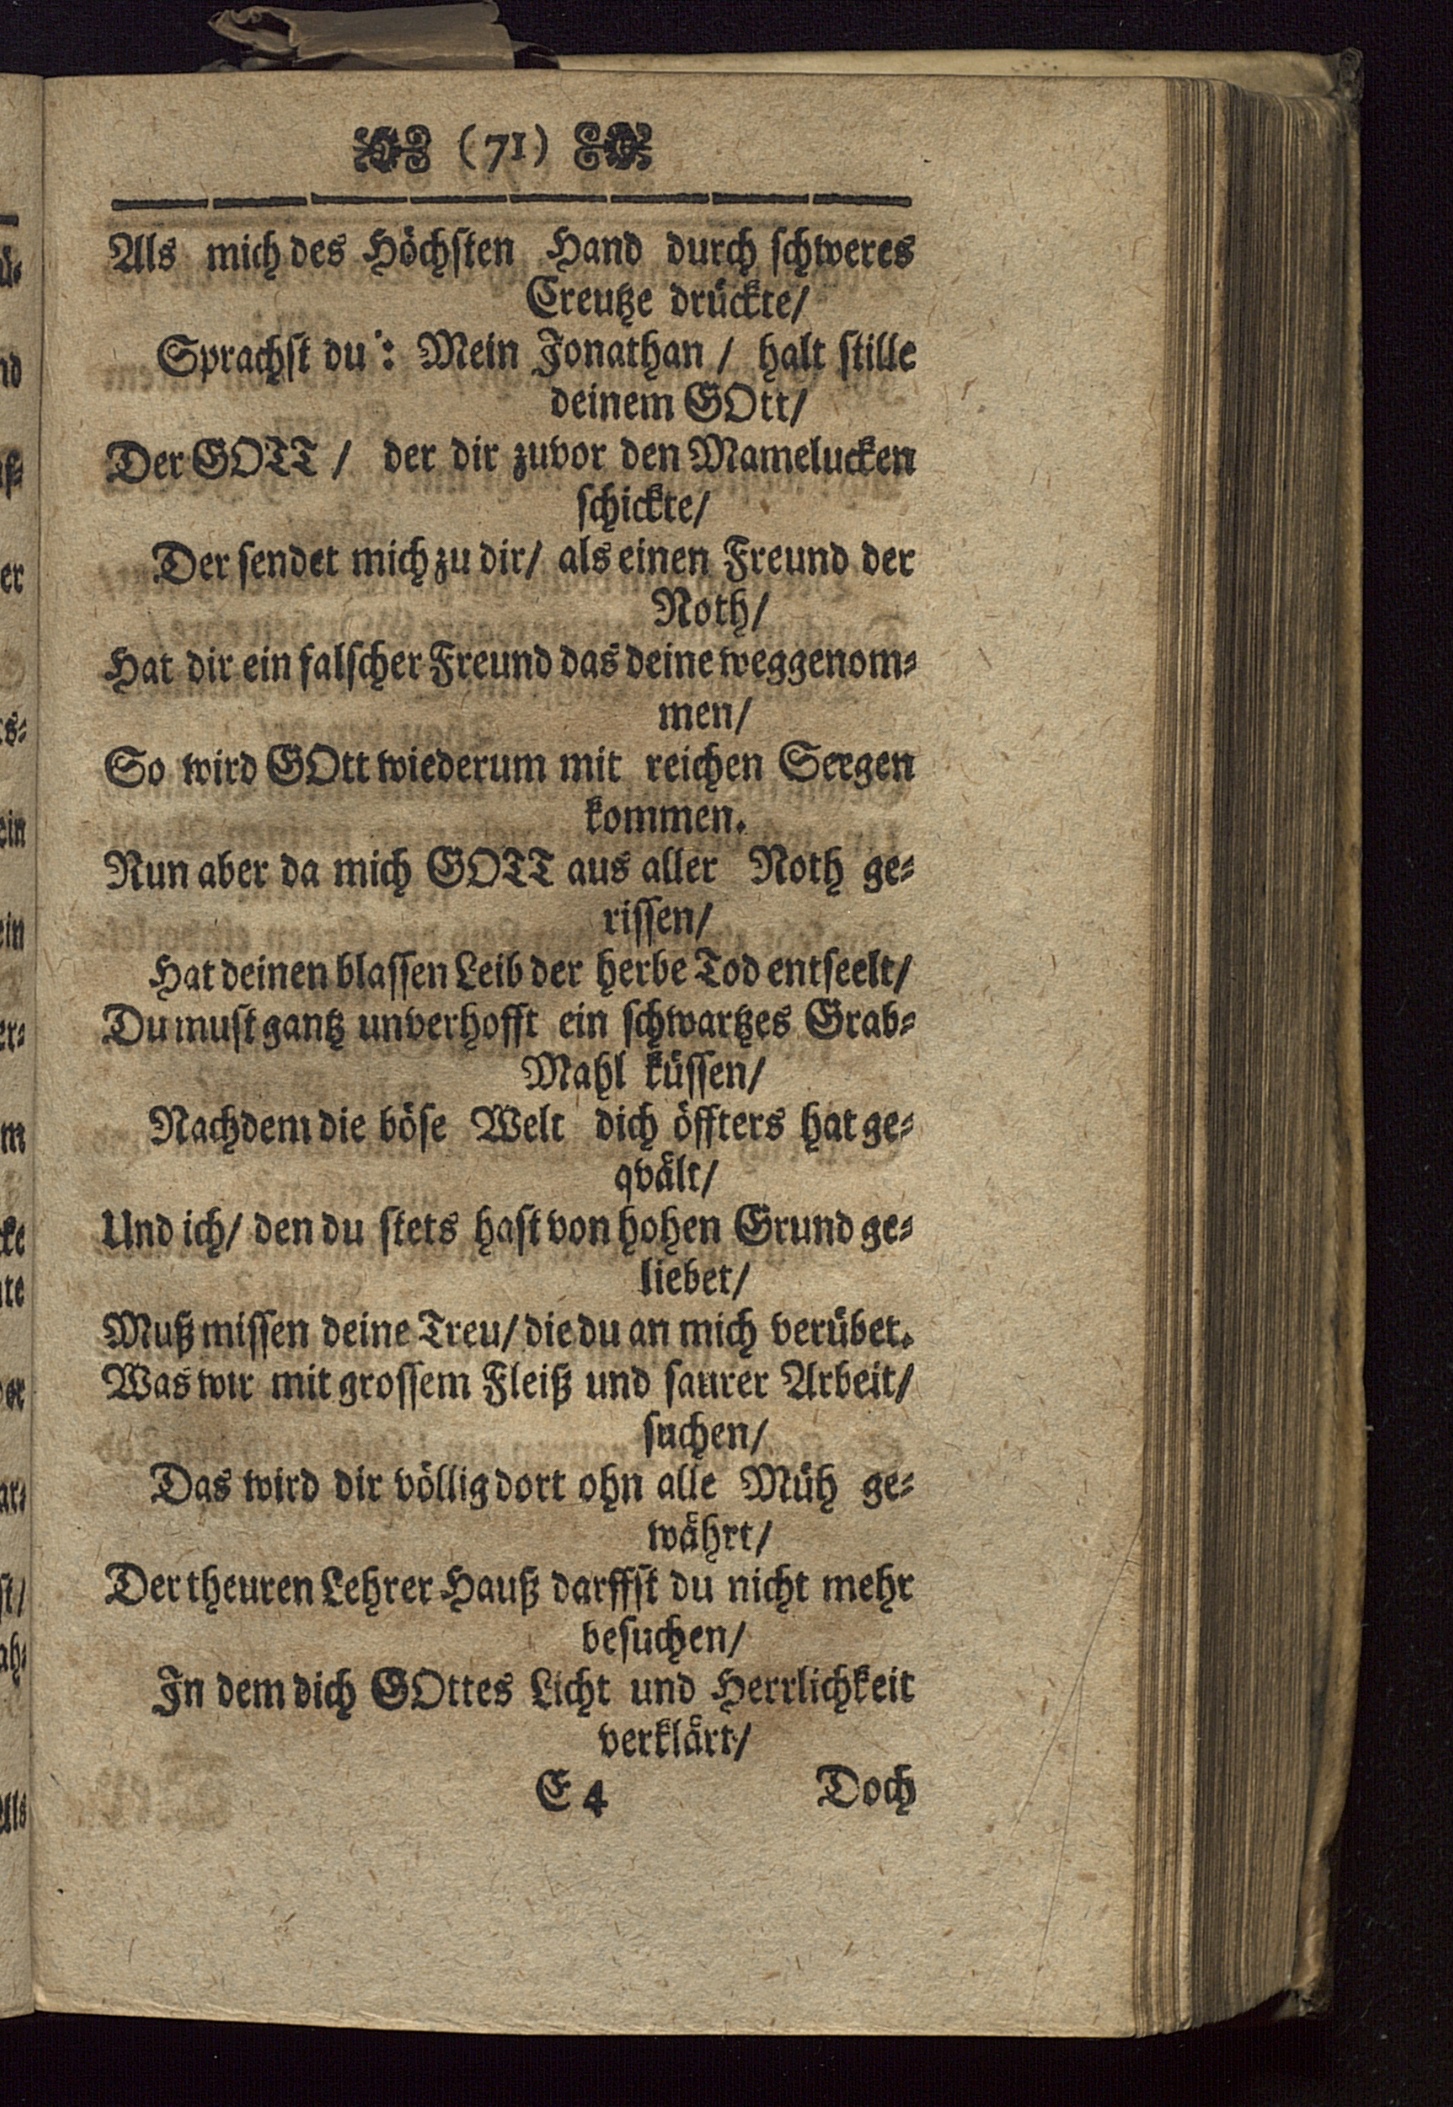 (71)
Als mich des Höchsten Hand durch schweres
Creutze drückte/
Sprachst du: Mein Jonathan / halt stille
deinem GOtt/
Der GOTT / der dir zuvor den Mamelucken
schickte/
Der sendet mich zu dir/ als einen Freund der
Noth/
Hat dir ein falscher Freund das deine weggenom-
men/
So wird GOtt wiederum mit reichen Seegen
kommen.
Nun aber da mich GOTT aus aller Noth ge-
rissen/
Hat deinen blassen Leib der herbe Tod entseelt/
Du must gantz unverhofft ein schwartzes Grab-
Mahl küssen/
Nachdem die böse Welt dich öffters hat ge-
qvält/
Und ich/ den du stets hast von hohen Grund ge-
liebet/
Muß missen deine Treu/ die du an mich verübet.
Was wir mit grossem Fleiß und saurer Arbeit/
suchen/
Das wird dir völlig dort ohn alle Müh ge-
währt/
Der theuren Lehrer Hauß darffst du nicht mehr
besuchen/
In dem dich GOttes Licht und Herrlichkeit
verklärt/
E 4 Doch